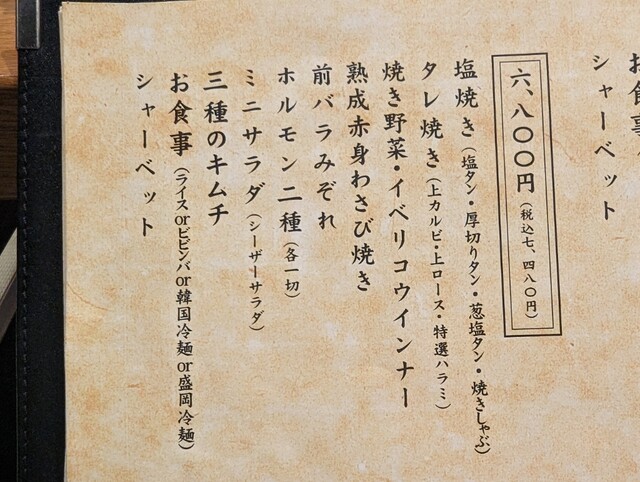 お食事
シャーベット
六、八〇〇円(税込七、四八〇円)
塩焼き(塩タン・厚切りタン・葱塩タン・焼きしゃぶ)
タレ焼き(上カルビ・上ロース・特選ハラミ)
焼き野菜・イベリコウインナー
熟成赤身わさび焼き
前バラみぞれ
ホルモン二種(各一切)
ミニサラダ(シーザーサラダ)
三種のキムチ
お食事(ライスorビビンバor韓国冷麺or盛岡冷麺)
シャーベット